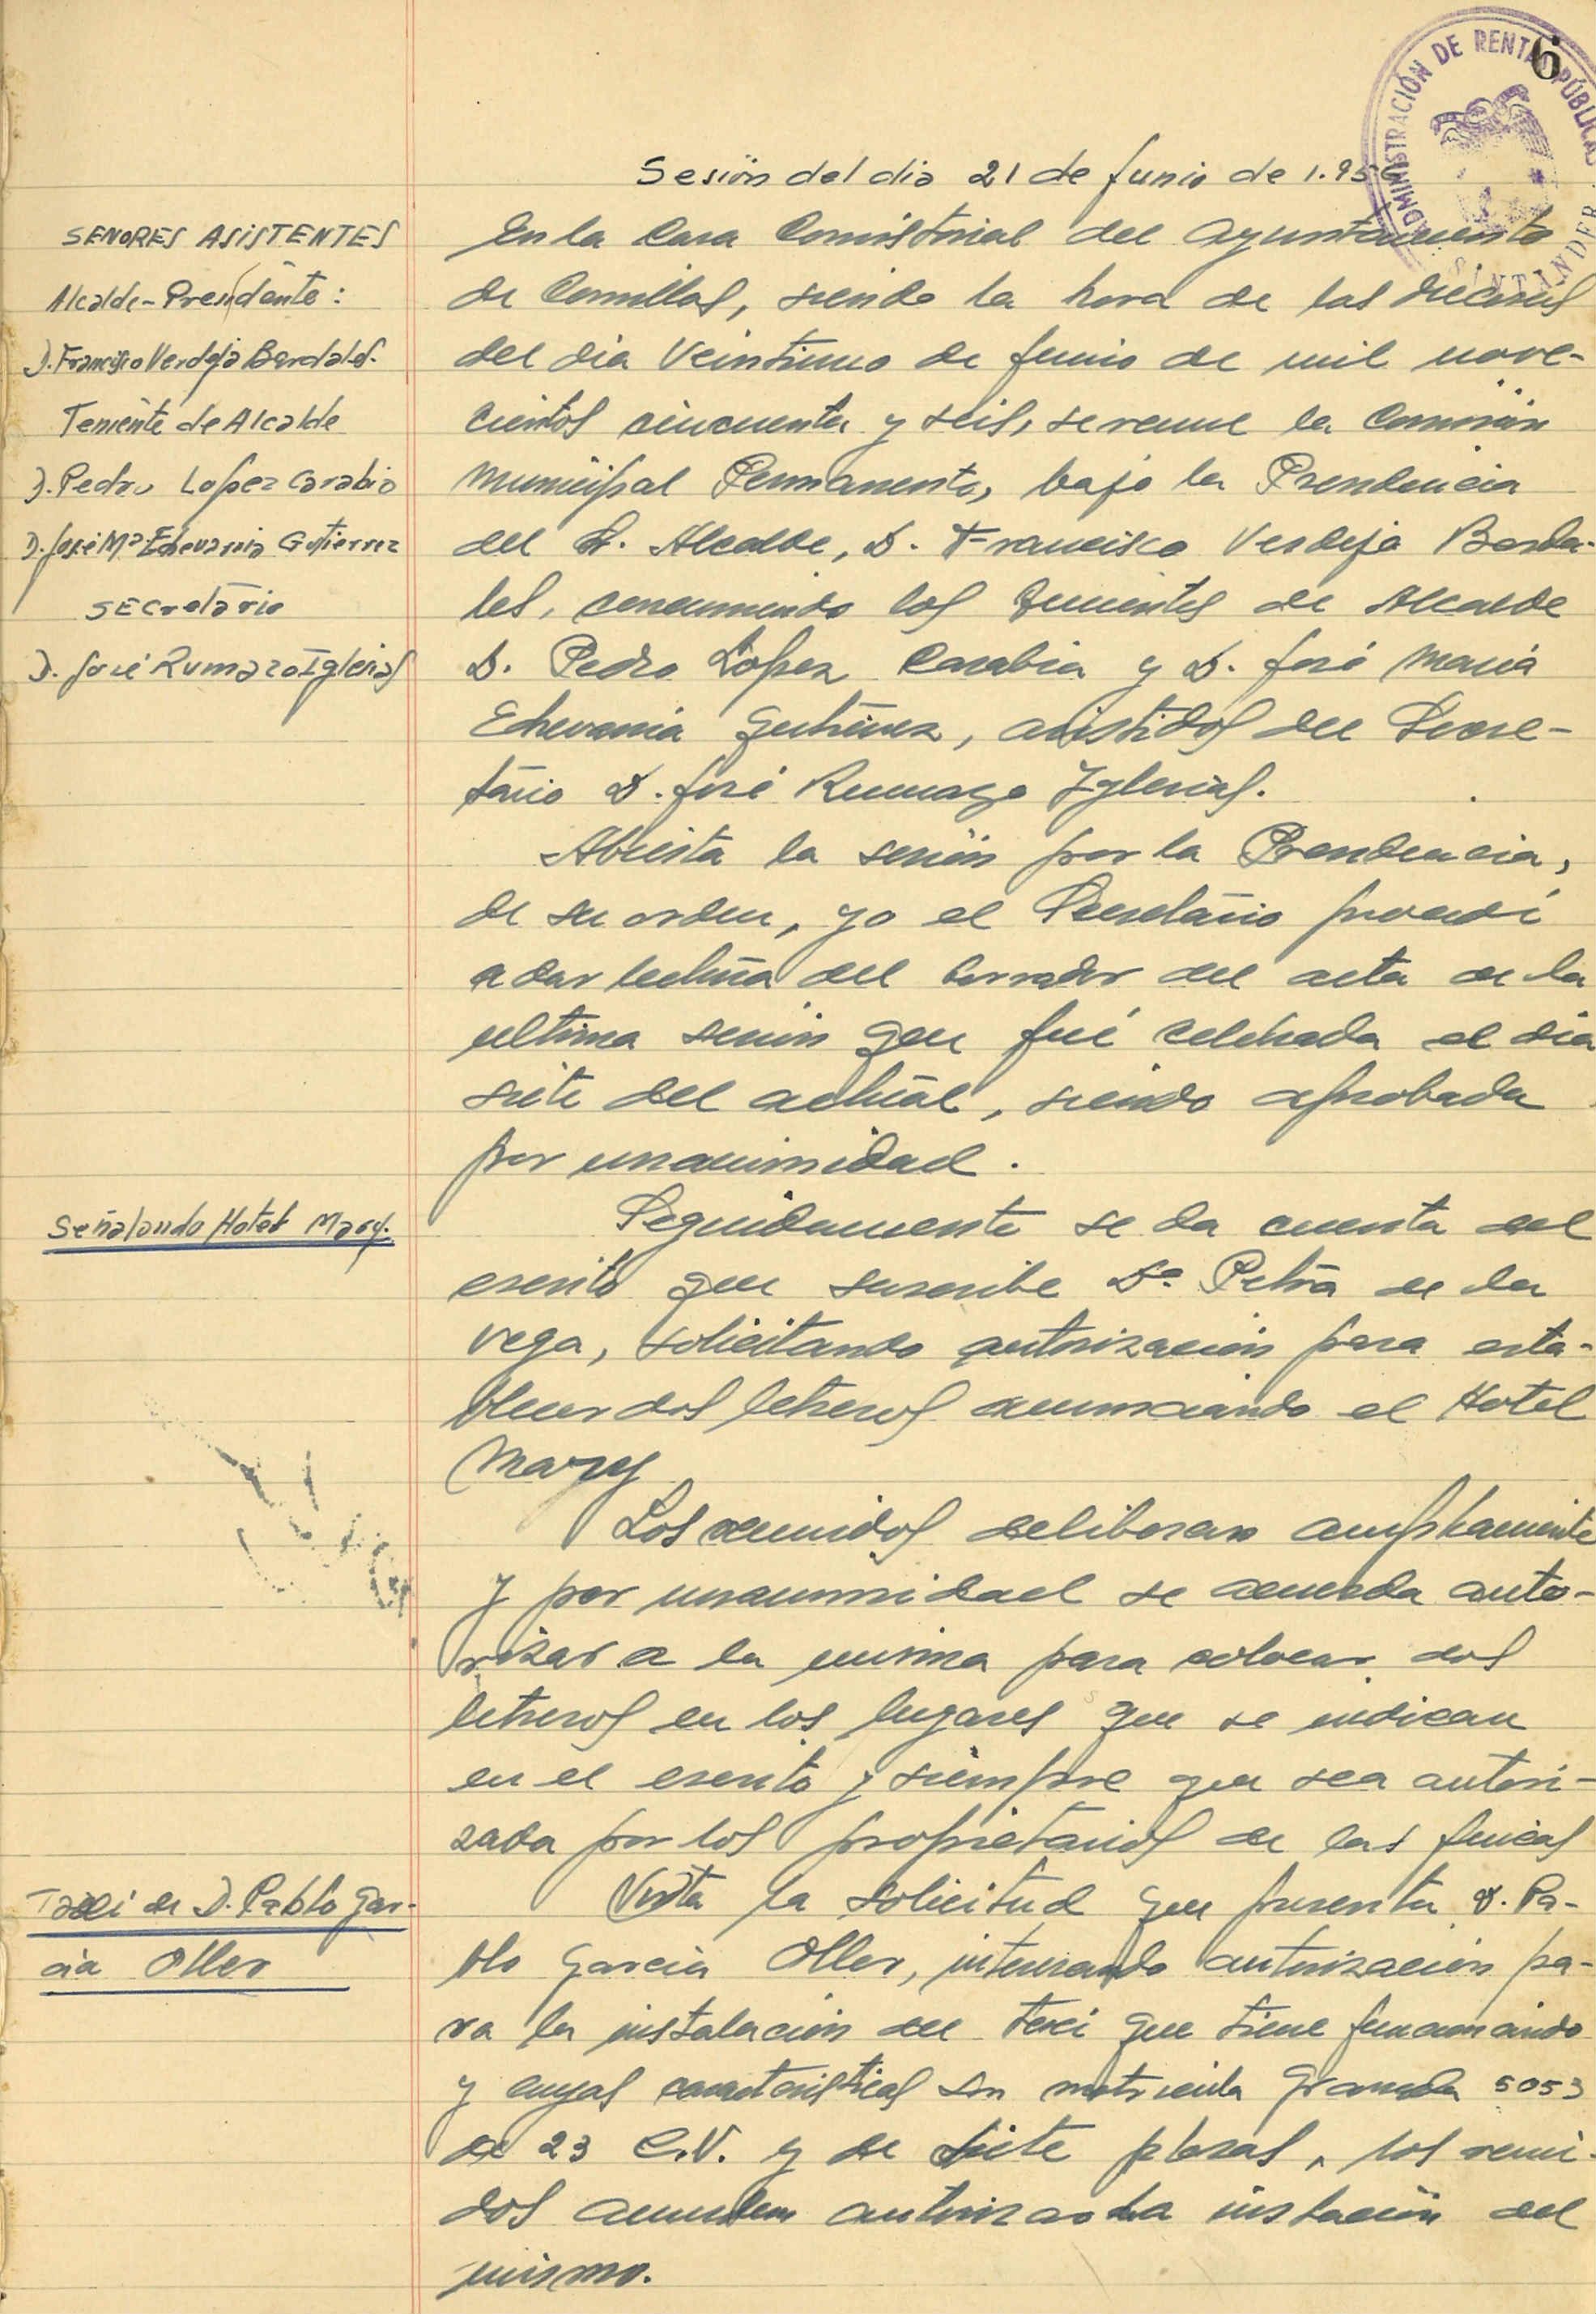 6
ADMINISTRACIÓN DE RENTAS PÚBLICAS
SANTANDER
Sesión del dia 21 de Junio de 1.956
SEÑORES ASISTENTES
Alcalde-Presidente:
D. Francisco Verdeja Bardales.
Teniente de Alcalde
D. Pedro Lopez Carabia
D. José Mª Echevarria Gutierrez
SECretario
D. José Rumazo Iglesias
En la Casa Consistorial del Ayuntamiento
de Comillas, siendo la hora de las diecinueve
del dia veintiuno de Junio de mil nove-
cientos cincuenta y seis, se reune la Comisión
Municipal Permanente, bajo la Presidencia
del Sr. Alcalde, D. Francisco Verdeja Barda-
les, concurriendo los Tenientes de Alcalde
D. Pedro Lopez Carabia y D. José Maria
Echevarria Gutierrez, asistidos del Secre-
tario D. José Rumazo Iglesias.
Abierta la sesión por la Presidencia,
de su orden, yo el Secretario procedí
a dar lectura del borrador del acta de la
ultima sesión que fué celebrada el dia
siete del actual, siendo aprobada
por unanimidad.
Señalando Hotel Mary.
Seguidamente se da cuenta del
escrito que suscribe Dª Petra de la
Vega, solicitando autorización para esta-
blecer dos letreros anunciando el Hotel
Mary
Los reunidos deliberan ampliamente
y por unanimidad se acuerda auto-
rizar a la misma para colocar dos
letreros en los lugares que se indican
en el escrito y siempre que sea autori-
zada por los propietarios de las fincas
Taxi de D. Pablo Gar-
cia Oller
Vista la solicitud que presenta D. Pa-
blo Garcia Oller, interesando autorización pa-
ra la instalación del taxi que tiene funcionando
y cuyas caracteristicas son matricula Granada 5053
de 23 C.V. y de siete plazas, los reuni-
dos acuerdan autorizar la instación del
mismo.